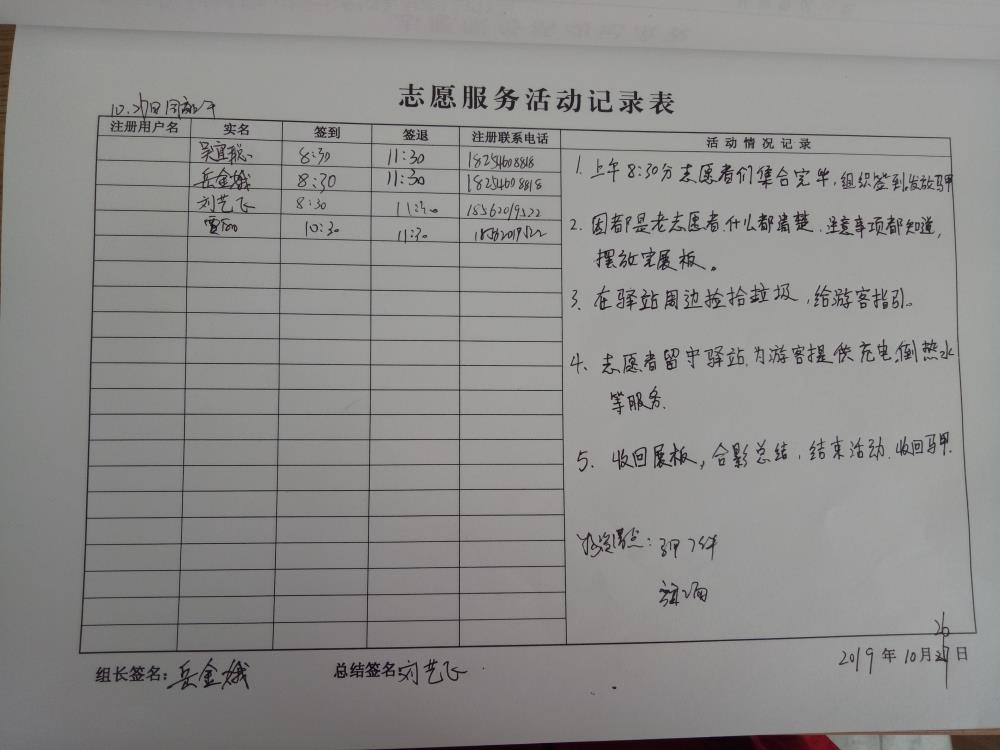 志愿服务活动记录表
注册用户名 实名 签到 签退 注册联系电话 活动情况记录
吴宜聪 8:30 11:30 18254608818
岳金娥 8:30 11:30 18254608818
刘艺飞 8:30 11:30 18562019522
10:30 11:30 18562019522
1. 上午8:30分志愿者们集合完毕,组织签到,发放马甲
2. 因都是老志愿者,什么都清楚.注意事项都知道,
摆放完展板。
3. 在驿站周边捡拾垃圾,给游客指引。
4. 志愿者留守驿站,为游客提供充电,倒热水
等服务.
5. 收回展板,合影总结,结束活动.收回马甲.
物资清点:马甲7件
组长签名:岳金娥 总结签名 刘艺飞
2019年10月26日